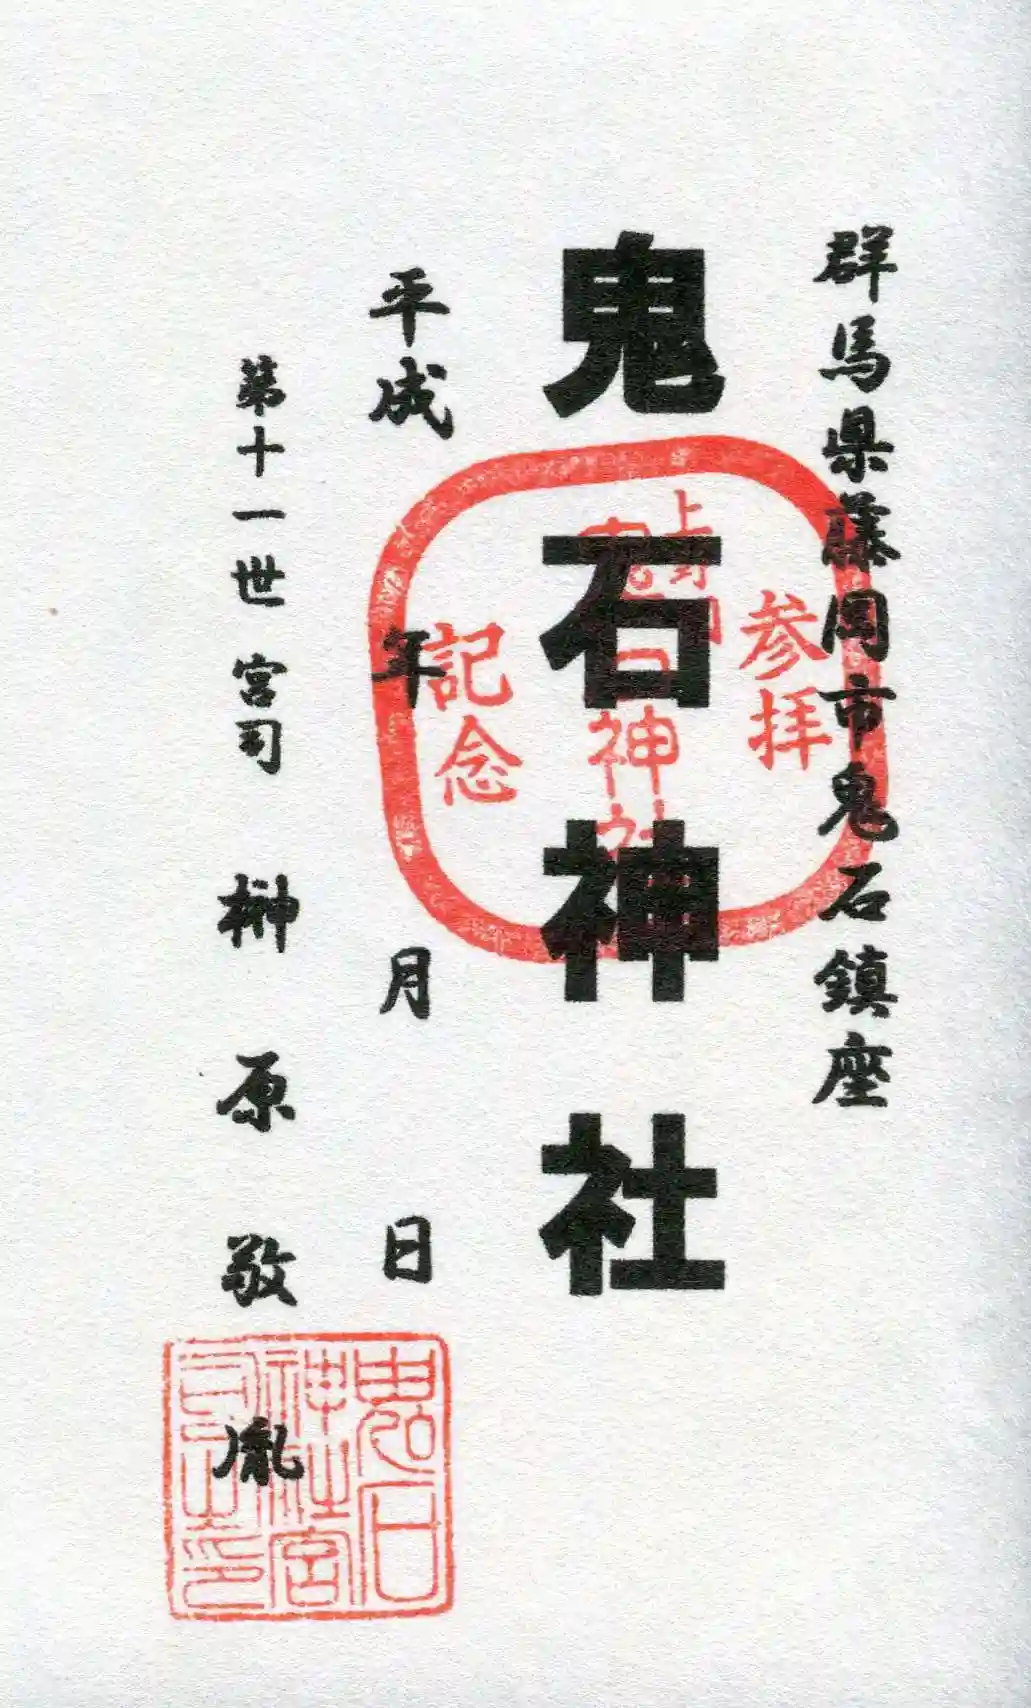 群馬県藤岡市鬼石鎮座
鬼石神社
参拝
上野国
鬼石神社
記念
平成 年 月 日
第十一世宮司 榊原敬胤
鬼石
神社宮
司之印